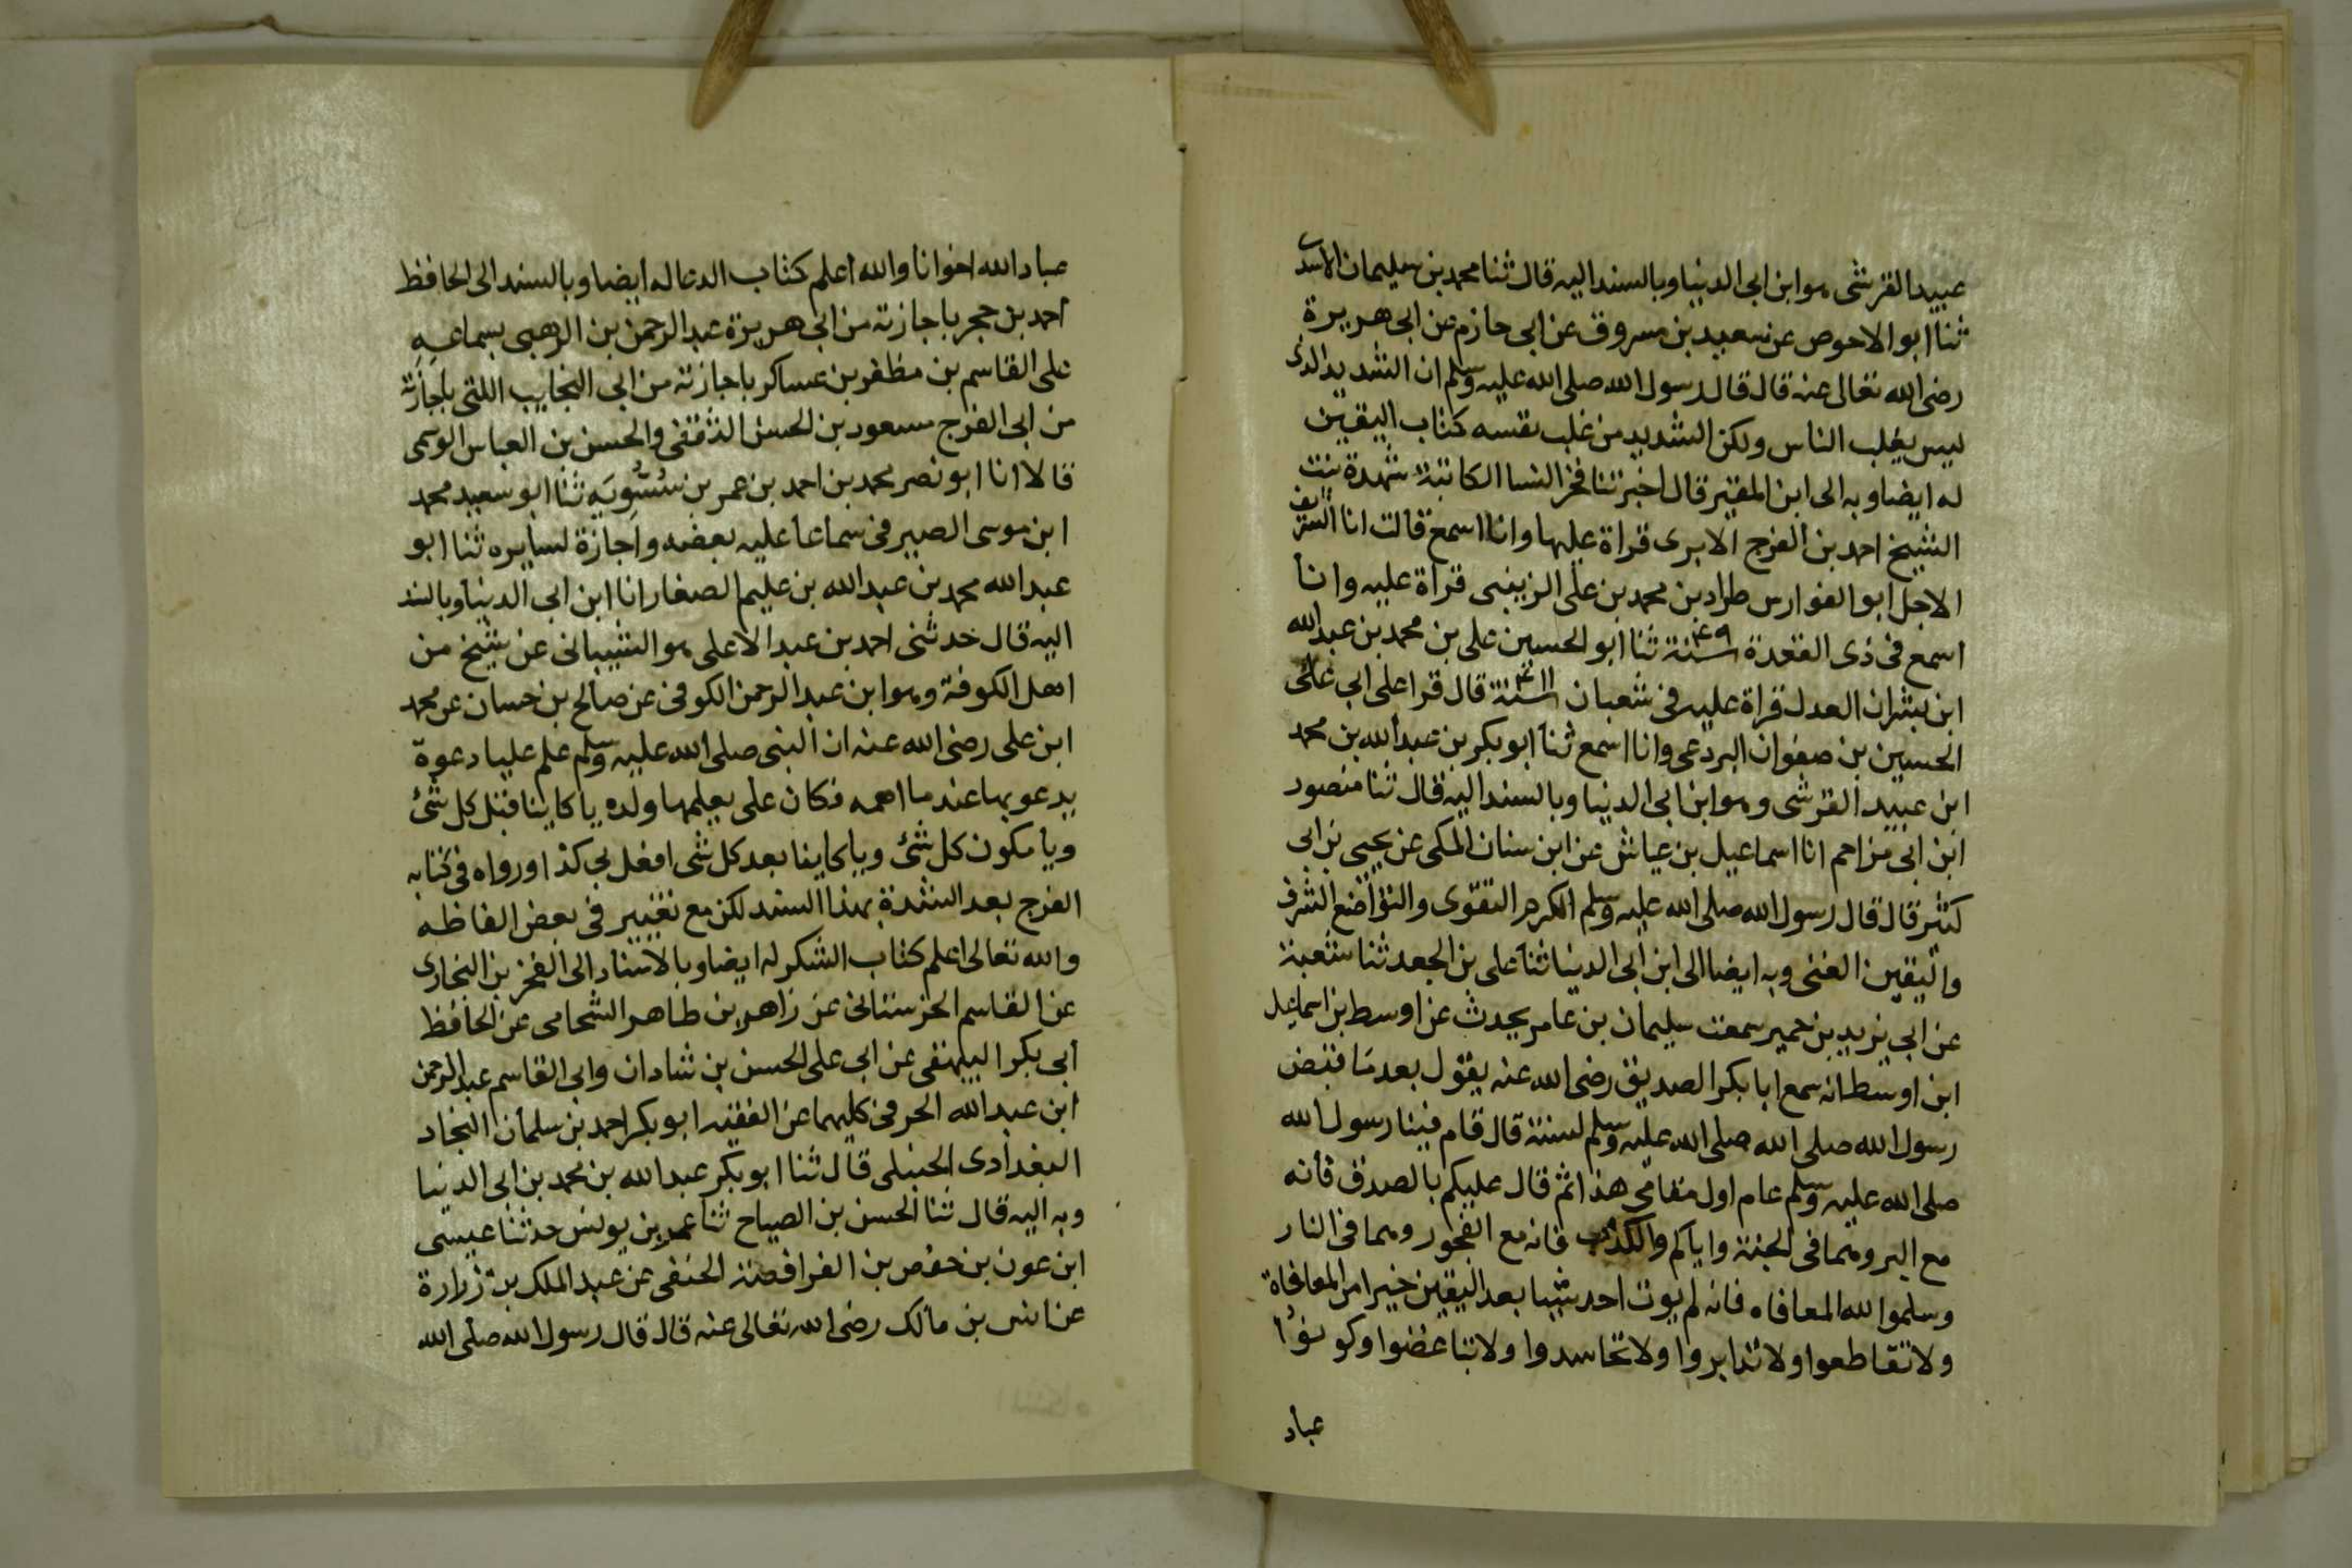 عبيد القرشى هو ابن ابى الدنيا وبالسند اليه قال ثنا محمد بن سليمان الاسدى
ثنا ابو الاحوص عن سعيد بن مسروق عن ابى حازم عن ابى هريرة
رضى الله تعالى عنه قال قال رسول الله صلى الله عليه وسلم ان الشديد الذى
ليس يغلب الناس ولكن الشديد من غلب نفسه كتاب اليقين
له ايضا وبه الى ابن المقير قال اخبرتنا فخر النسا الكاتبة شهدة بنت
الشيخ احمد بن الفرج الابرى قراة عليها وانا اسمع قالت انا الشريف
الاجل ابو الفوارس طراد بن محمد بن على الزينبى قراة عليه وانا
اسمع فى ذى القعدة سنة ٤٩٠ ثنا ابو الحسين على بن محمد بن عبد الله
ابن بشران العدل قراة عليه فى شعبان سنة ٤١١ قال قرا على ابى على
الحسين بن صفوان البردعى وانا اسمع ثنا ابو بكر بن عبد الله بن محمد
ابن عبيد القرشى وهو ابن ابى الدنيا وبالسند اليه قال ثنا منصور
ابن ابى مزاحم انا اسماعيل بن عياش عن ابن سنان المكى عن يحيى بن ابى
كثير قال قال رسول الله صلى الله عليه وسلم الكرم التقوى والتواضع الشرف
واليقين الغنى وبه ايضا الى ابن ابى الدنيا ثنا على بن الجعد ثنا شعبة
عن ابى يزيد بن خمير سمعت سليمان بن عامر يحدث عن اوسط بن اسماعيل
ابن اوسط انه سمع ابا بكر الصديق رضى الله عنه يقول بعد ما قبض
رسول الله صلى الله صلى الله عليه وسلم لسنة قال قام فينا رسول الله
صلى الله عليه وسلم عام اول مقامى هذا ثم قال عليكم بالصدق فانه
مع البر وهما فى الجنة واياكم والكذب فانه مع الفجور وهما فى النار
وسلموا لله المعافاه فانه لم يوت احد شيا بعد اليقين خيرا من المعافاة
ولا تقاطعوا ولا تدابروا ولا تحاسدوا ولا تباغضوا وكونوا
عباد
عباد الله اخوانا والله اعلم كتاب الدعا له ايضا وبالسند الى الحافظ
احمد بن حجر باجازته من ابى هريرة عبد الرحمن بن الذهبى بسماعه
على القاسم بن مظفر بن عساكر باجازته من ابى النجايب اللتى باجازته
من ابى الفرج مسعود بن الحسن الثقفى والحسن بن العباس الرستمى
قالا انا ابو نصر محمد بن احمد بن عمر بن سسويه ثنا ابو سعيد محمد
ابن موسى الصيرفى سماعا عليه بعضه واجازة لسايره ثنا ابو
عبد الله محمد بن عبد الله بن عليم الصفار انا ابن ابى الدنيا وبالسند
اليه قال حدثنى احمد بن عبد الاعلى هو الشيبانى عن شيخ من
اهل الكوفة وهو ابن عبد الرحمن الكوفى عن صالح بن حسان عن محمد
ابن على رضى الله عنه ان النبى صلى الله عليه وسلم علم عليا دعوة
يدعو بها عند ما اهمه فكان على يعلمها ولده يا كاينا قبل كل شئ
ويا مكون كل شئ ويا كاينا بعد كل شى افعل بى كذا ورواه فى كتابه
الفرج بعد الشدة بهذا السند لكن مع تغيير فى بعض الفاظه
والله تعالى اعلم كتاب الشكر له ايضا وبالاسناد الى الفخر بن البخارى
عن القاسم الحرستانى عن زاهر بن طاهر الشحامى عن الحافظ
ابى بكر البيهقى عن ابى على الحسن بن شادان وابى القاسم عبد الرحمن
ابن عبد الله الحرفى كليهما عن الفقيه ابو بكر احمد بن سلمان النجاد
البغدادى الحنبلى قال ثنا ابو بكر عبد الله بن محمد بن ابى الدنيا
وبه اليه قال ثنا الحسن بن الصباح ثنا عمر بن يونس حدثنا عيسى
ابن عون بن حفص بن الفرافصة الحنفى عن عبد الملك بن زرارة
عن انس بن مالك رضى الله تعالى عنه قال قال رسول الله صلى الله